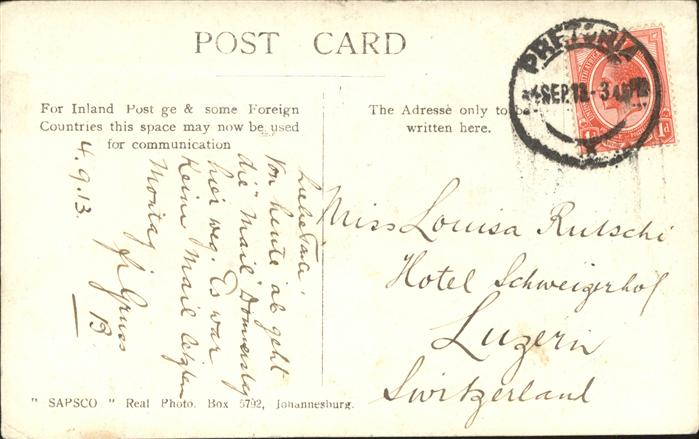 POST CARD
For Inland Post ge & some Foreign
Countries this space may now be used
for communication
The Adressè only to be
written here.
PRETORIA
4 SEP 13 - 3 40 PM
1d
4.9.13.
Liebe
Von heute ab geht
die "Mail" Donnerstag
hier weg. Es war
keine Mail letzten
Montag
Gruss
B.
Miss Louisa Rutschi
Hotel Schweizerhof
Luzern
Switzerland
" SAPSCO " Real Photo. Box 5792, Johannesburg.